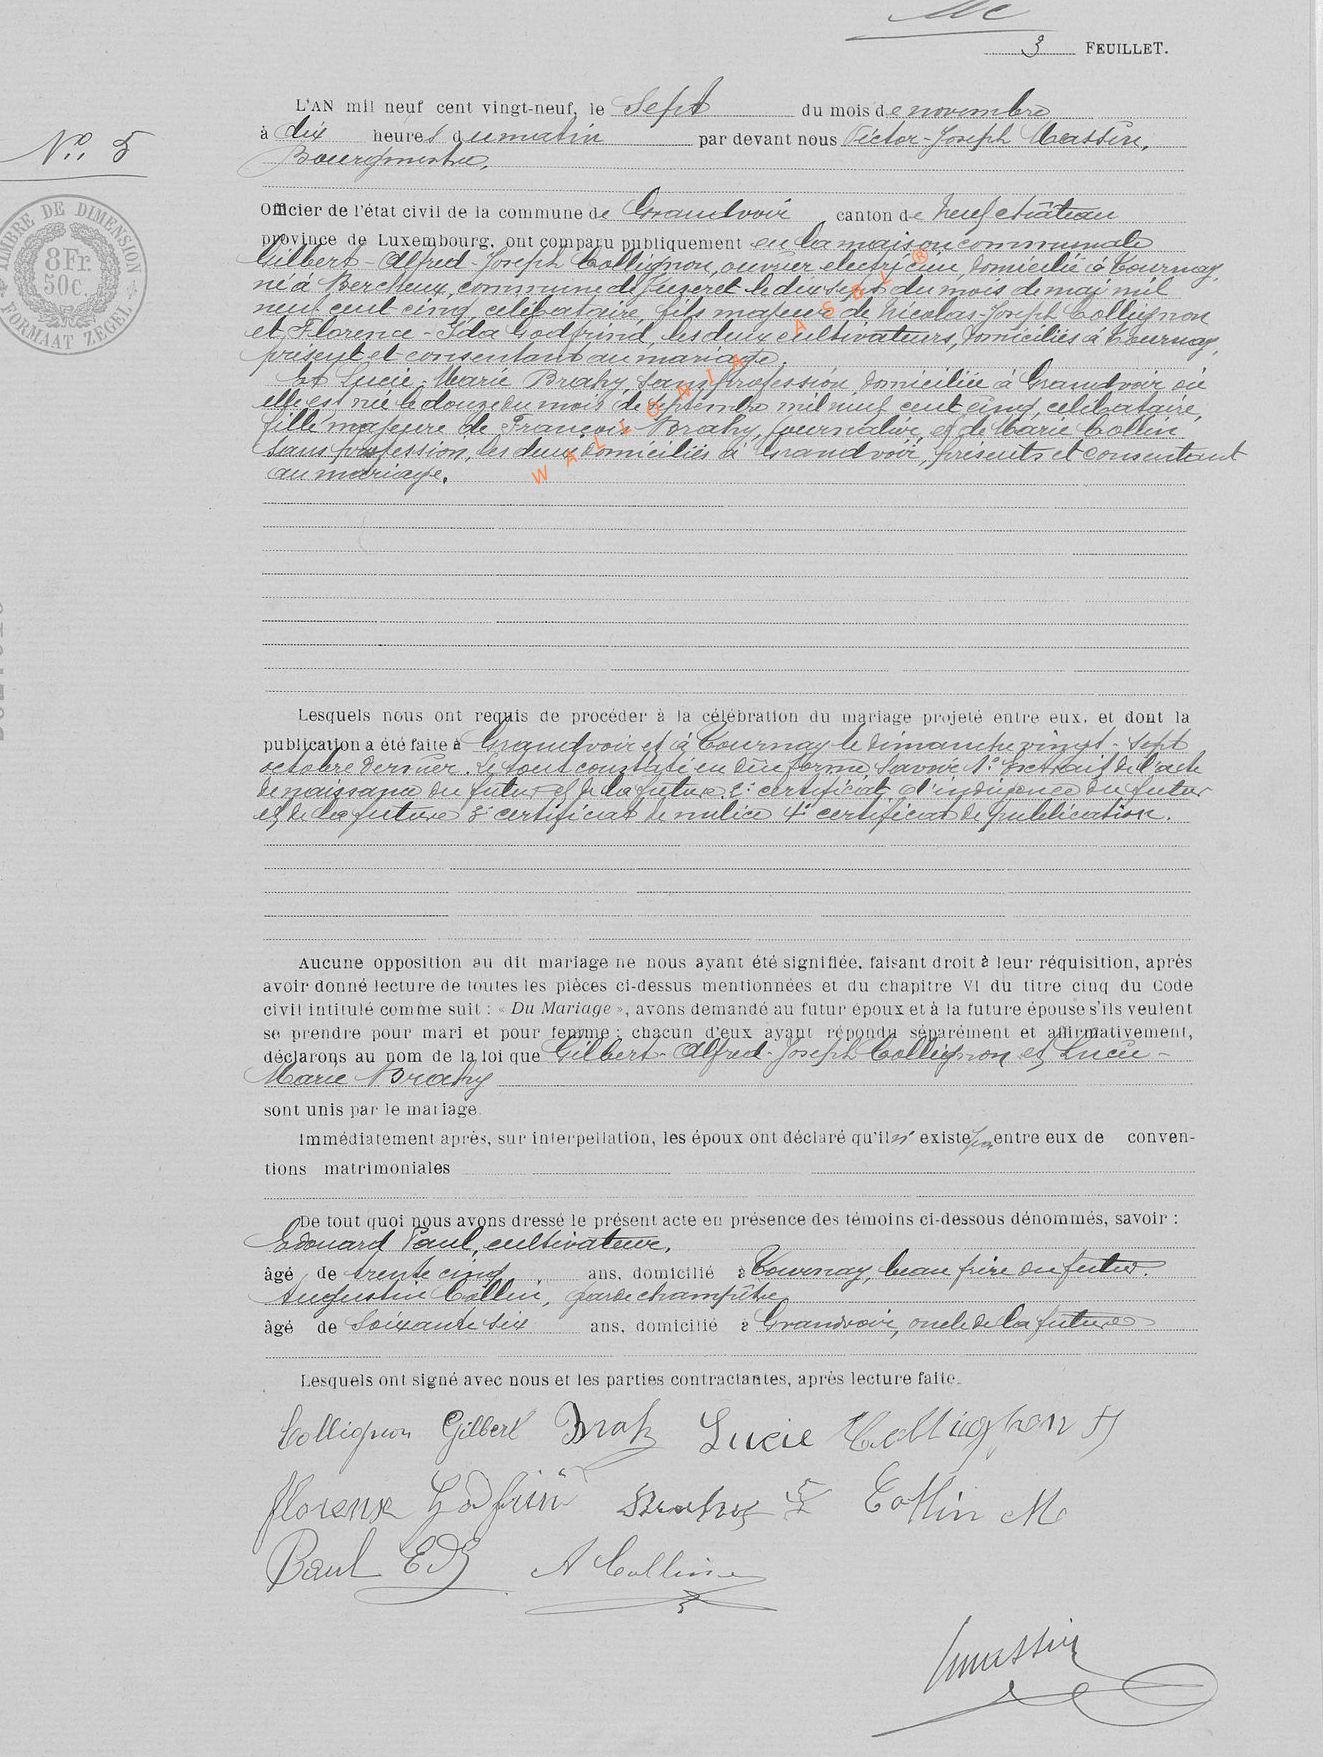 3 FEUILLET.
L'AN mil neuf cent vingt-neuf, le Sept du mois de novembre
N° 5
à dix heures du matin par devant nous Victor-Joseph Massin,
Bourgmestre,
TIMBRE DE DIMENSION
8 Fr.
50c.
FORMAAT ZEGEL
Officier de l'état civil de la commune de Grandvoir canton de Neufchâteau
province de Luxembourg, ont comparu publiquement en la maison communale
Gilbert-Alfred-Joseph Collignon, ouvrier electricien, domicilié à Tournay,
né à Bercheux, commune de Juseret le dix sept du mois de mai mil
neuf cent cinq, célibataire, fils majeur de Nicolas-Joseph Collignon
et Florence-Ida Godfrind, les deux cultivateurs, domiciliés à Tournay,
présent et consentant au mariage.
Et Lucie-Marie Brahy, sans profession, domiciliée à Grandvoir où
elle est née le douze du mois de septembre mil neuf cent cinq, célibataire,
fille majeure de François Brahy, journalier, et de Marie Collin
sans profession, les deux domiciliés à Grandvoir, présents et consentant
au mariage.
WALLONIA ASBL ®
Lesquels nous ont requis de procéder à la célébration du mariage projeté entre eux, et dont la
publication a été faite à Grandvoir et à Tournay le dimanche vingt-sept
octobre dernier. Le tout constaté en due forme, savoir 1° extrait de l'acte
de naissance du futur et de la future 2° certificat d'indigence du futur
et de la future 3° certificat de milice 4° certificat de publication.
Aucune opposition au dit mariage ne nous ayant été signifiée, faisant droit à leur réquisition, après
avoir donné lecture de toutes les pièces ci-dessus mentionnées et du chapitre VI du titre cinq du Code
civil intitulé comme suit : « Du Mariage », avons demandé au futur époux et à la future épouse s'ils veulent
se prendre pour mari et pour femme ; chacun d'eux ayant répondu séparément et affirmativement,
déclarons au nom de la loi que Gilbert-Alfred-Joseph Collignon et Lucie-
Marie Brahy
sont unis par le mariage.
Immédiatement après, sur interpellation, les époux ont déclaré qu'il n'existe pas entre eux de conven-
tions matrimoniales
De tout quoi nous avons dressé le présent acte en présence des témoins ci-dessous dénommés, savoir :
Edouard Paul, cultivateur,
âgé de trente cinq ans, domicilié à Tournay, beau frère du futur.
Augustin Collin, garde champêtre
âgé de soixante six ans, domicilié à Grandvoir, oncle de la future
Lesquels ont signé avec nous et les parties contractantes, après lecture faite.
Collignon Gilbert Brahy Lucie Collignon
florence Godfrin Brahy Collin M
Paul Ed A Collin
Massin